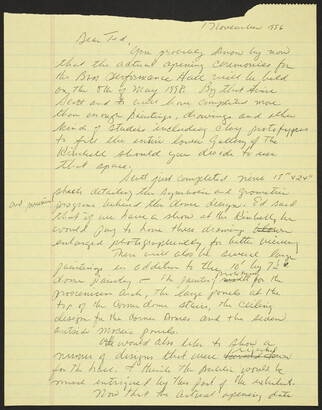 1 November 1996
Dear Ted,
You probably know by now
that the actual opening ceremonies for
the Bass Performance Hall will be held
on the 8th of May 1998. By that time
Scott and I will have completed more
than enough paintings, drawings and other
kinds of studies including clay prototypes
to fill the entire lower Gallery of the
Kimbell should you decide to use
that space.
Scott just completed nine 18" x 24"
sheets detailing the symbolism and geometric
and measured
programs behind the dome design. Ed said
that if we have a show at the Kimbell, he
would pay to have these drawings
enlarged photographically for better viewing
There will also be several large
paintings in addition to the 16' by 72"
dome painting - The painting for the
proscenium Arch, the large panels at the
top of the Grand dome stairs, the Ceiling
design for the Corner Domes and the
outside mosaic panels.
We would also like to show a
number of designs that were rejected
for the Hall. I think the Public would be
most intrigued by this part of the exhibit.
Now that the actual opening date